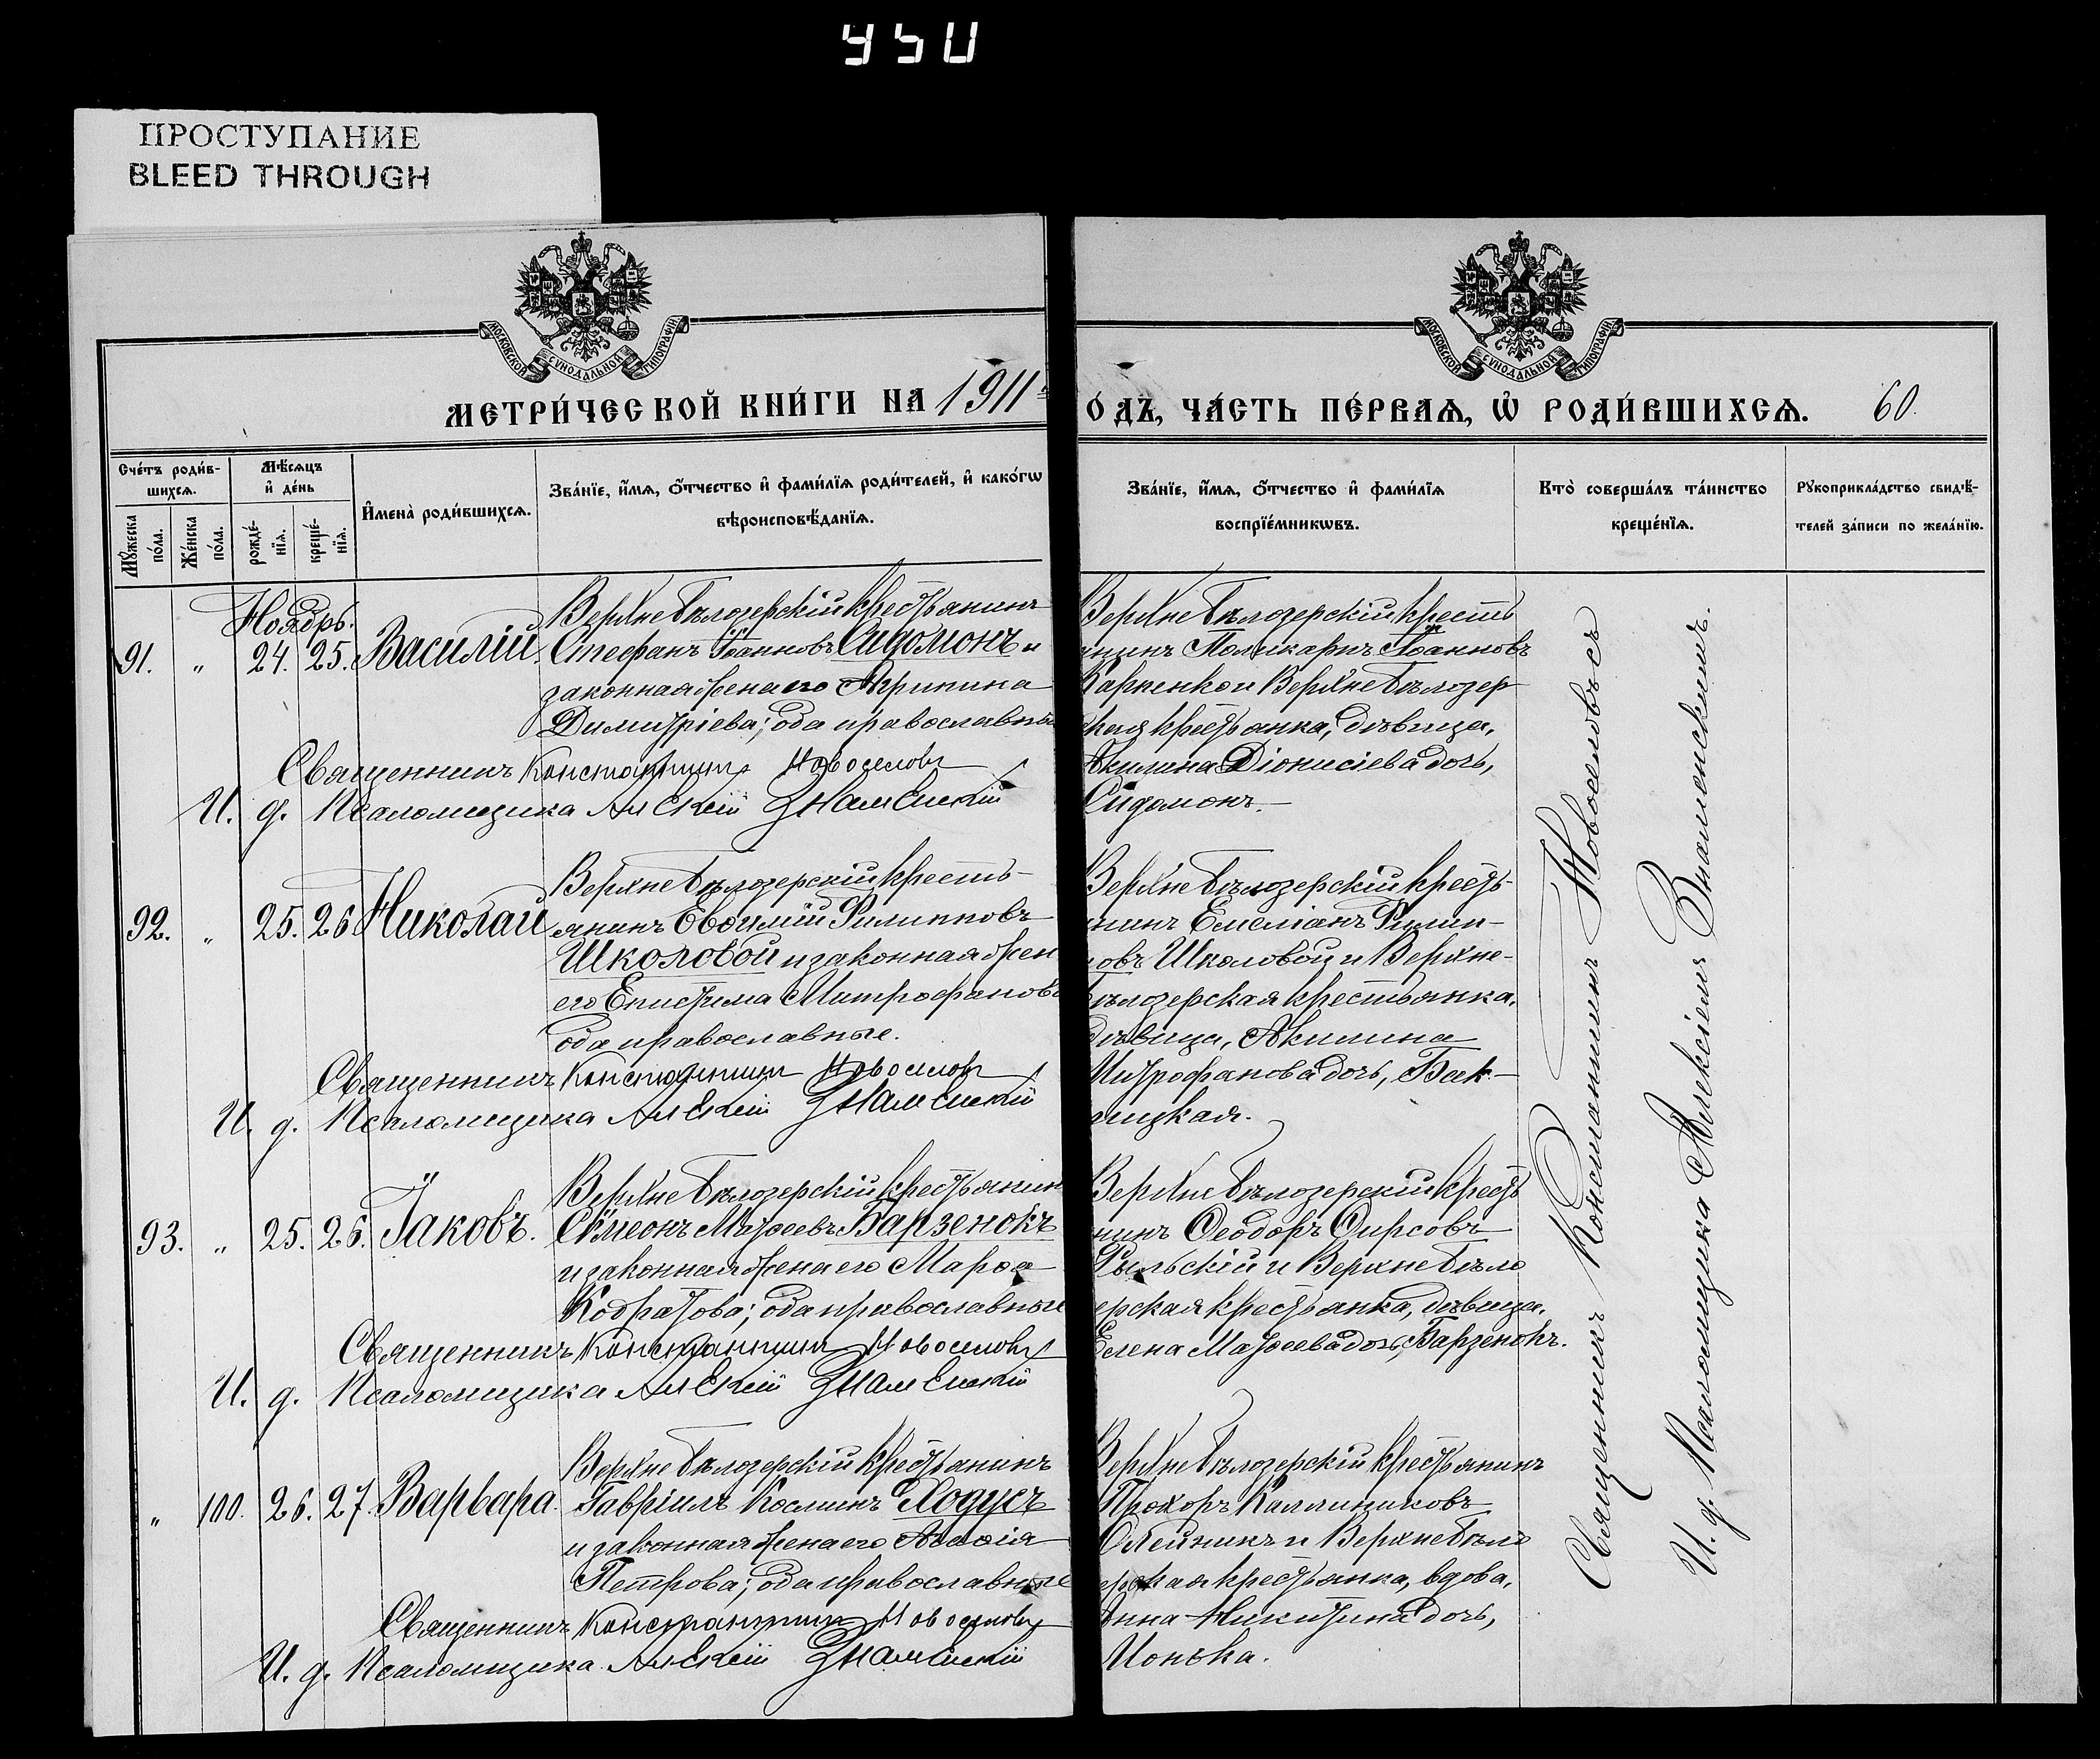 ПРОСТУПАНИЕ
BLEED THROUGH
МОСКОВСКОЙ СѴНОДАЛЬНОЙ ТИПОГРАФІИ
МОСКОВСКОЙ СѴНОДАЛЬНОЙ ТИПОГРАФІИ
МЕТРИ́ЧЕСКОЙ КНИ́ГИ НА 1911
О́ДЪ, ЧА́СТЬ ПЕ́РВАѦ, Ѡ РОДИ́ВШИХСѦ. 60.
Сче́тъ роди́в-
шихсѧ.
Мꙋжеска
по́ла.
Же́нска
по́ла.
Мѣсѧцъ
и де́нь
рожде́-
нїѧ.
креще́-
нїѧ.
И҆мена̀ роди́вшихсѧ.
Зва́нїе, и҆́мѧ, ѻ҆́тчество и҆ фами́лїѧ роди́телей, и҆ како́гѡ
вѣроисповѣ́данїѧ.
Зва́нїе, и҆́мѧ, ѻ҆́тчество и҆ фами́лїѧ
воспрїе́мникѡвъ.
Кто̀ соверша́лъ та́инство
креще́нїѧ.
Рꙋкоприкла́дство свидѣ́-
телей за́писи по жела́нїю.
Ноябрь.
91. " 24. 25. Василій.
Верхнебѣлозерскій крестьянинъ
Стефанъ Іоанновъ Сидомонъ и
законная жена его Акрипина
Димитріева; оба православны
Священникъ Константинъ Новоселовъ
И. д. Псаломщика Алексій Знаменскій
Верхнебѣлозерскій кресть
янинъ Поликарпъ Іоанновъ
Карпенко и Верхнебѣлозер
ская крестьянка, дѣвица,
Акилина Діонисіева дочь,
Сидомонъ.
92. " 25. 26 Николай
Верхнебѣлозерскій кресть-
янинъ Евѳимій Филипповъ
Школовой и законная жен
его Епистима Митрофанова
оба православные.
Священникъ Константинъ Новоселовъ
И. д. Псаломщика Алексій Знаменскій
Верхнебѣлозерскій кресть-
янинъ Емеліанъ Филип-
овъ Школовой и Верхне-
бѣлозерская крестьянка,
дѣвица, Акилина
Митрофанова дочь, Бак-
лицкая.
93. " 25. 26. Іаковъ.
Верхнебѣлозерскій крестьянин
Сѵмеонъ Матѳеевъ Барзенокъ
и законная жена его Марѳа
Кодратова; оба православные
Священникъ Константинъ Новоселовъ
И. д. Псаломщика Алексій Знаменскій
Верхнебѣлозерскій кресть
янинъ Ѳеодоръ Ѳирсовъ
Рыльскій и Верхнебѣло
зерская крестьянка, дѣвица,
Елена Матѳеева дочь, Барзенокъ.
" 100. 26. 27. Варвара.
Верхнебѣлозерскій крестьянинъ
Гавріилъ Косминъ Ходусъ
и законная жена его
Петрова; оба православные
Священникъ Константинъ Новоселовъ
И. д. Псаломщика Алексій Знаменскій
Верхнебѣлозерскій крестьянинъ
Прохоръ Каллиниковъ
Олейникъ и Верхнебѣло
зерская крестьянка, вдова,
Анна Никитина дочь,
Ионька.
Священникъ Константинъ Новоселовъ съ
И. д. Псаломщика Алексіемъ Знаменскимъ.